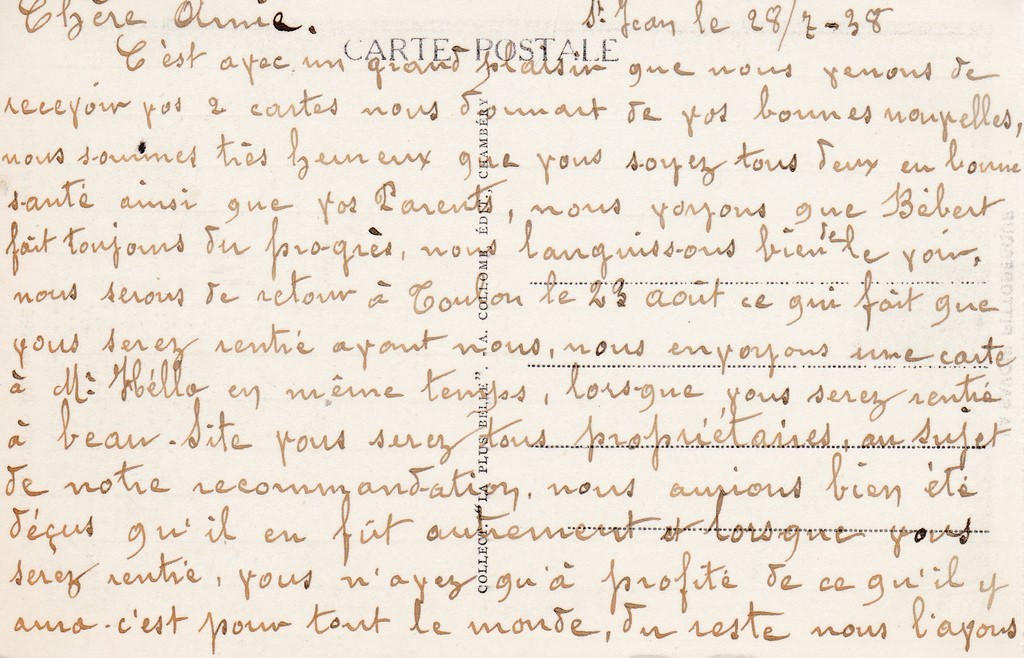 Chère Amie. St Jean le 28/7-38
CARTE POSTALE
C'est avec un grand plaisir que nous venons de
recevoir vos 2 cartes nous donnant de vos bonnes nouvelles,
nous sommes très heureux que vous soyez tous deux en bonne
santé ainsi que vos Parents, nous voyons que Bébert
fait toujours du progrès, nous languissons bien de le voir.
nous serons de retour à Toulon le 23 août ce qui fait que
vous serez rentré avant nous, nous envoyons une carte
à Mr Hélla en même temps, lorsque vous serez rentré
à beau-Site vous serez tous propriétaires, au sujet
de notre recommandation, nous aurions bien été
déçus qu'il en fût autrement et lorsque vous
serez rentré, vous n'avez qu'à profité de ce qu'il y
aura c'est pour tout le monde, du reste nous l'avons
COLLECT. "LA PLUS BELLE". A. COLLOMB, ÉDIT., CHAMBÉRY